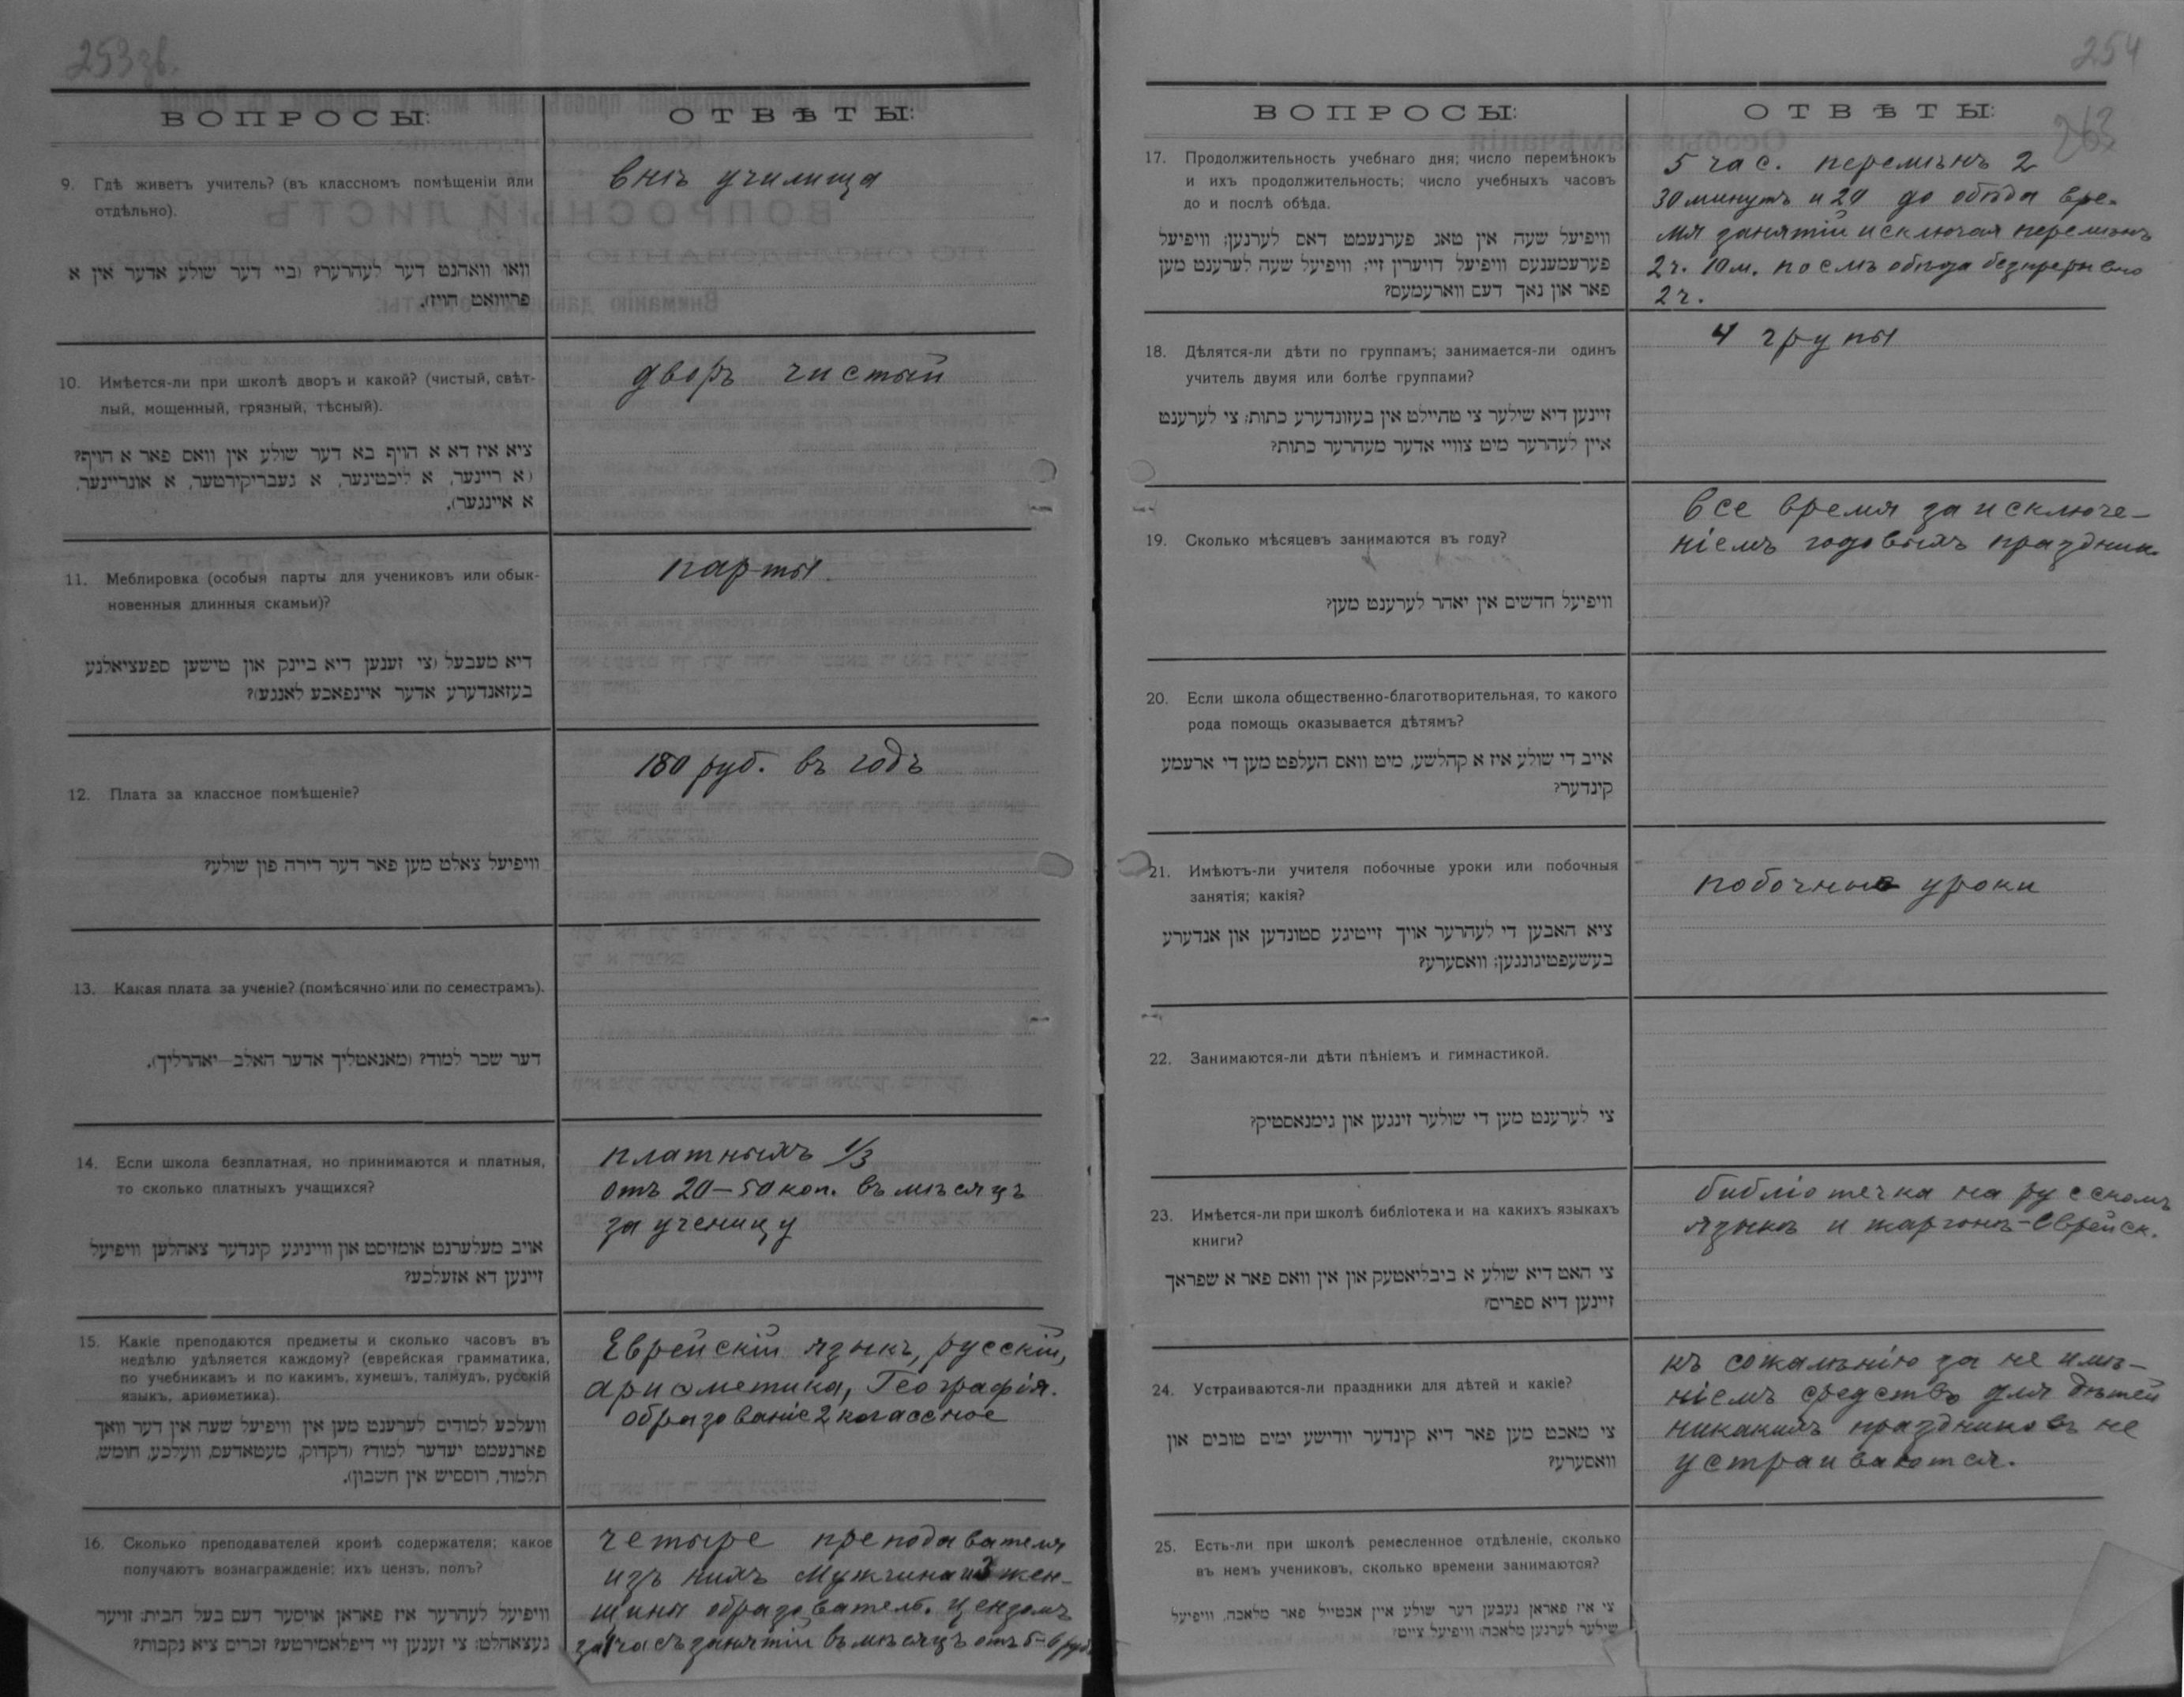 253об.
ВОПРОСЫ:
ОТВѢТЫ:
9. Гдѣ живетъ учитель? (въ классномъ помѣщеніи или
отдѣльно).
וואו וואהנט דער לעהרער? (ביי דער שולע אדער אין א
פריוואט הויז).
внѣ училища
10. Имѣется-ли при школѣ дворъ и какой? (чистый, свѣт-
лый, мощенный, грязный, тѣсный).
ציא איז דא א הויף בא דער שולע אין וואס פאר א הויף?
(א ריינער, א ליכטיגער, א געבריקירטער, א אונריינער,
א איינגער).
дворъ чистый
11. Меблировка (особыя парты для учениковъ или обык-
новенныя длинныя скамьи)?
דיא מעבעל (צי זענען דיא ביינק און טישען ספעציאלנע
בעזאנדערע אדער איינפאכע לאנגע)?
парты.
12. Плата за классное помѣщеніе?
וויפיעל צאלט מען פאר דער דירה פון שולע?
180 руб. въ годъ
13. Какая плата за ученіе? (помѣсячно или по семестрамъ).
דער שכר למוד? (מאנאטליך אדער האלב—יאהרליך).
14. Если школа безплатная, но принимаются и платныя,
то сколько платныхъ учащихся?
אויב מעלערנט אומזיסט און ווייניגע קינדער צאהלען וויפיעל
זיינען דא אזעלכע?
платныхъ 1/3
отъ 20—50 коп. въ мѣсяцъ
за ученицу
15. Какіе преподаются предметы и сколько часовъ въ
недѣлю удѣляется каждому? (еврейская грамматика,
по учебникамъ и по какимъ, хумешъ, талмудъ, русскій
языкъ, ариѳметика).
וועלכע למודים לערענט מען אין וויפיעל שעה אין דער וואך
פארנעמט יעדער למוד? (דקדוק, מעטאדעס, וועלכע, חומש,
תלמוד, רוססיש אין חשבון).
Еврейскій языкъ, русскій,
ариѳметика, Географія.
образованіе 2 классное
16. Сколько преподавателей кромѣ содержателя; какое
получаютъ вознагражденіе; ихъ цензъ, полъ?
וויפיעל לעהרער איז פאראן אויסער דעם בעל הבית: זויער
געצאהלט: צי זענען זיי דיפלאמירטע? זכרים ציא נקבות?
четыре преподавателя
изъ нихъ мужчина и 3 жен-
щины образовател. цензомъ
за часъ занятій въ мѣсяцъ отъ 5-6 руб.
254
263
ВОПРОСЫ:
ОТВѢТЫ:
17. Продолжительность учебнаго дня; число перемѣнокъ
и ихъ продолжительность; число учебныхъ часовъ
до и послѣ обѣда.
וויפיעל שעה אין טאג פערנעמט דאס לערנען; וויפיעל
פערעמענעס וויפיעל דויערין זיי; וויפיעל שעה לערענט מען
פאר און נאך דעם ווארעמעס?
5 час. перемѣнъ 2
30 минутъ и 20 до обѣда вре-
мя занятій исключая перемѣнъ
2 ч. 10 м. послѣ обѣда безпрерывно
2 ч.
18. Дѣлятся-ли дѣти по группамъ; занимается-ли одинъ
учитель двумя или болѣе группами?
זיינען דיא שילער צי טהיילט אין בעזונדערע כתות; צי לערענט
איין לעהרער מיט צוויי אדער מעהרער כתות?
4 групы
19. Сколько мѣсяцевъ занимаются въ году?
וויפיעל חדשים אין יאהר לערענט מען?
все время за исключе-
ніемъ годовыхъ праздник.
20. Если школа общественно-благотворительная, то какого
рода помощь оказывается дѣтямъ?
אייב די שולע איז א קהלשע, מיט וואס העלפט מען די ארעמע
קינדער?
21. Имѣютъ-ли учителя побочные уроки или побочныя
занятія; какія?
ציא האבען די לעהרער אויך זייטיגע סטונדען און אנדערע
בעשעפטיגונגען; וואסערע?
побочные уроки
22. Занимаются-ли дѣти пѣніемъ и гимнастикой.
צי לערענט מען די שולער זינגען און גימנאסטיק?
23. Имѣется-ли при школѣ библіотека и на какихъ языкахъ
книги?
צי האט דיא שולע א ביבליאטעק און אין וואס פאר א שפראך
זיינען דיא ספרים?
библіотечка на русскомъ
языкѣ и жаргонъ-Еврейск.
24. Устраиваются-ли праздники для дѣтей и какіе?
צי מאכט מען פאר דיא קינדער יודישע ימים טובים און
וואסערע?
къ сожалѣнію за не имѣ-
ніемъ средствъ для дѣтей
никакихъ праздниковъ не
устраиваются.
25. Есть-ли при школѣ ремесленное отдѣленіе, сколько
въ немъ учениковъ, сколько времени занимаются?
צי איז פאראן נעבען דער שולע איין אבטייל פאר מלאכה, וויפיעל
שילער לערנען מלאכה; וויפיעל צייט?